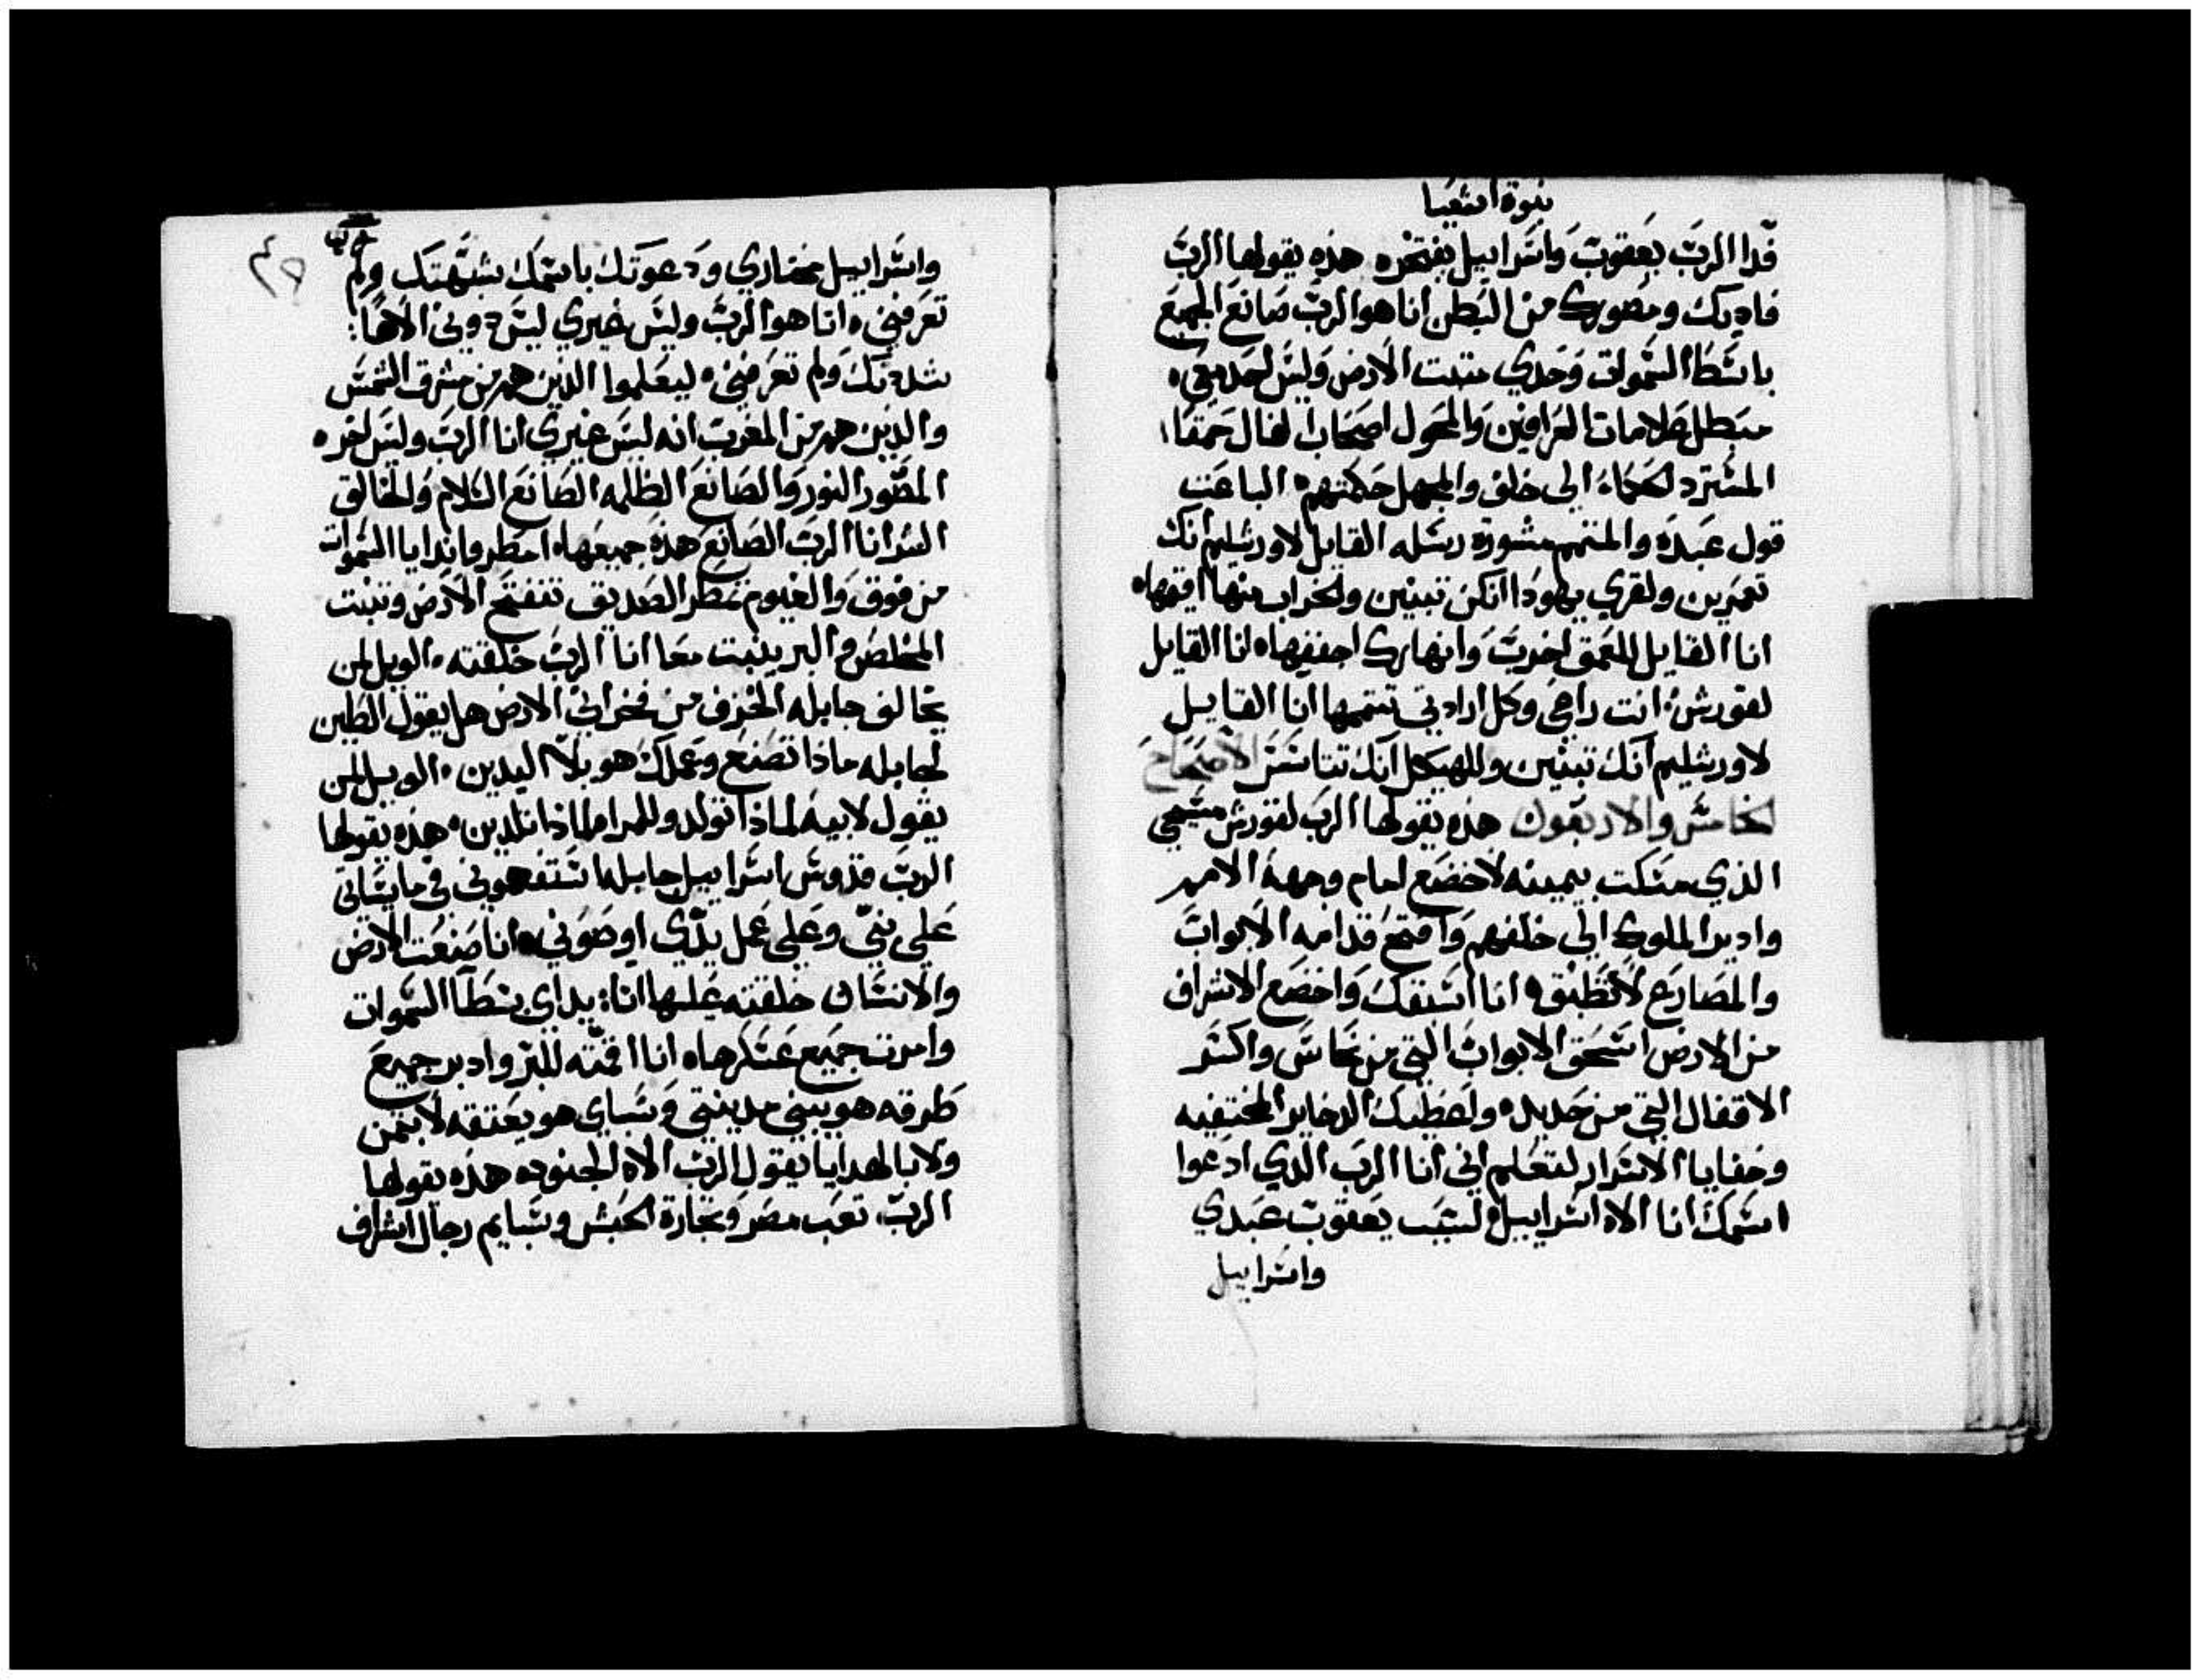 نبوة اشعيا
فدا الرب يعقوب واسراييل يفتخر ه هذه يقولها الرب
فاديك ومصورك من البطن انا هو الرب صانع الجميع
باسط السموات وحدي مثبت الارض وليس احد معي ه
مبطل علامات العرافين والمحول اصحاب الفال حمقا؛
المسترد الحكماء الي خلف والمجهل حكمتهم ه الباعث
قول عبده والمتمم مشورة رسله القايل لاورشليم انك
تعمرين ولقري يهودا انكن تبنين والخراب منها اقيمها ه
انا القايل للعمق اخرب وانهارك اجففها ه انا القايل
لقورش انت راعي وكل ارادتي تتممها انا القايل
لاورشليم انك تبنين وللهيكل انك تتاسس الاصحاح
الخامس والاربعون هذه يقولها الرب لقورش مسيحي
الذي مسكت بيمينه لاخضع امام وجهه الامم
وادير الملوك الي خلفهم وافتح قدامه الابواب
والمصارع لا تطبق ه انا اسبقك واخضع الاشراف
من الارض اسحق الابواب التي من نحاس واكسر
الاقفال التي من حديد ه واعطيك الدخاير المختفيه
وخفايا الاسرار لتعلم اني انا الرب الذي ادعوا
اسمك انا الاه اسراييل ه لسبب يعقوب عبدي
واسراييل
٤٥
واسراييل مختاري ودعوتك باسمك شبهتك ولم
تعرفني ه انا هو الرب وليس غيري ليس دوني الاهًا:
شددتك ولم تعرفني ه ليعلموا الذين هم من مشرق الشمس
والذين هم من المغرب انه ليس غيري انا الرب وليس اخر ه
المصور النور والصانع الظلمه الصانع السلام والخالق
الشر انا الرب الصانع هذه جميعها ه امطروا ندا يا السموات
من فوق والغيوم تمطر الصديق تنفتح الارض وتنبت
المخلص والبر ينبت معا انا الرب خلقته ه الويل لمن
يخالف جابله الخزف من فخراني الارض هل يقول الطين
لجابله ماذا تصنع وعملك هو بلا اليدين ه الويل لمن
يقول لابيه لماذا تولد وللمراه لماذا تلدين ه هذه يقولها
الرب قدوس اسراييل جابله استفهموني في ما ياتي
علي بني وعلي عمل يدي اوصوني ه انا صنعت الارض
والانسان خلقته عليها انا: يداي بسطا السموات
وامرت جميع عسكرها ه انا اقمته للبر وادبر جميع
طرقه هو يبني مدينتي وسباي هو يعتقه لا بثمن
ولا بالهدايا يقول الرب الاه الجنود ه هذه يقولها
الرب تعب مصر وتجارة الحبش وسبايم رجال اشراف